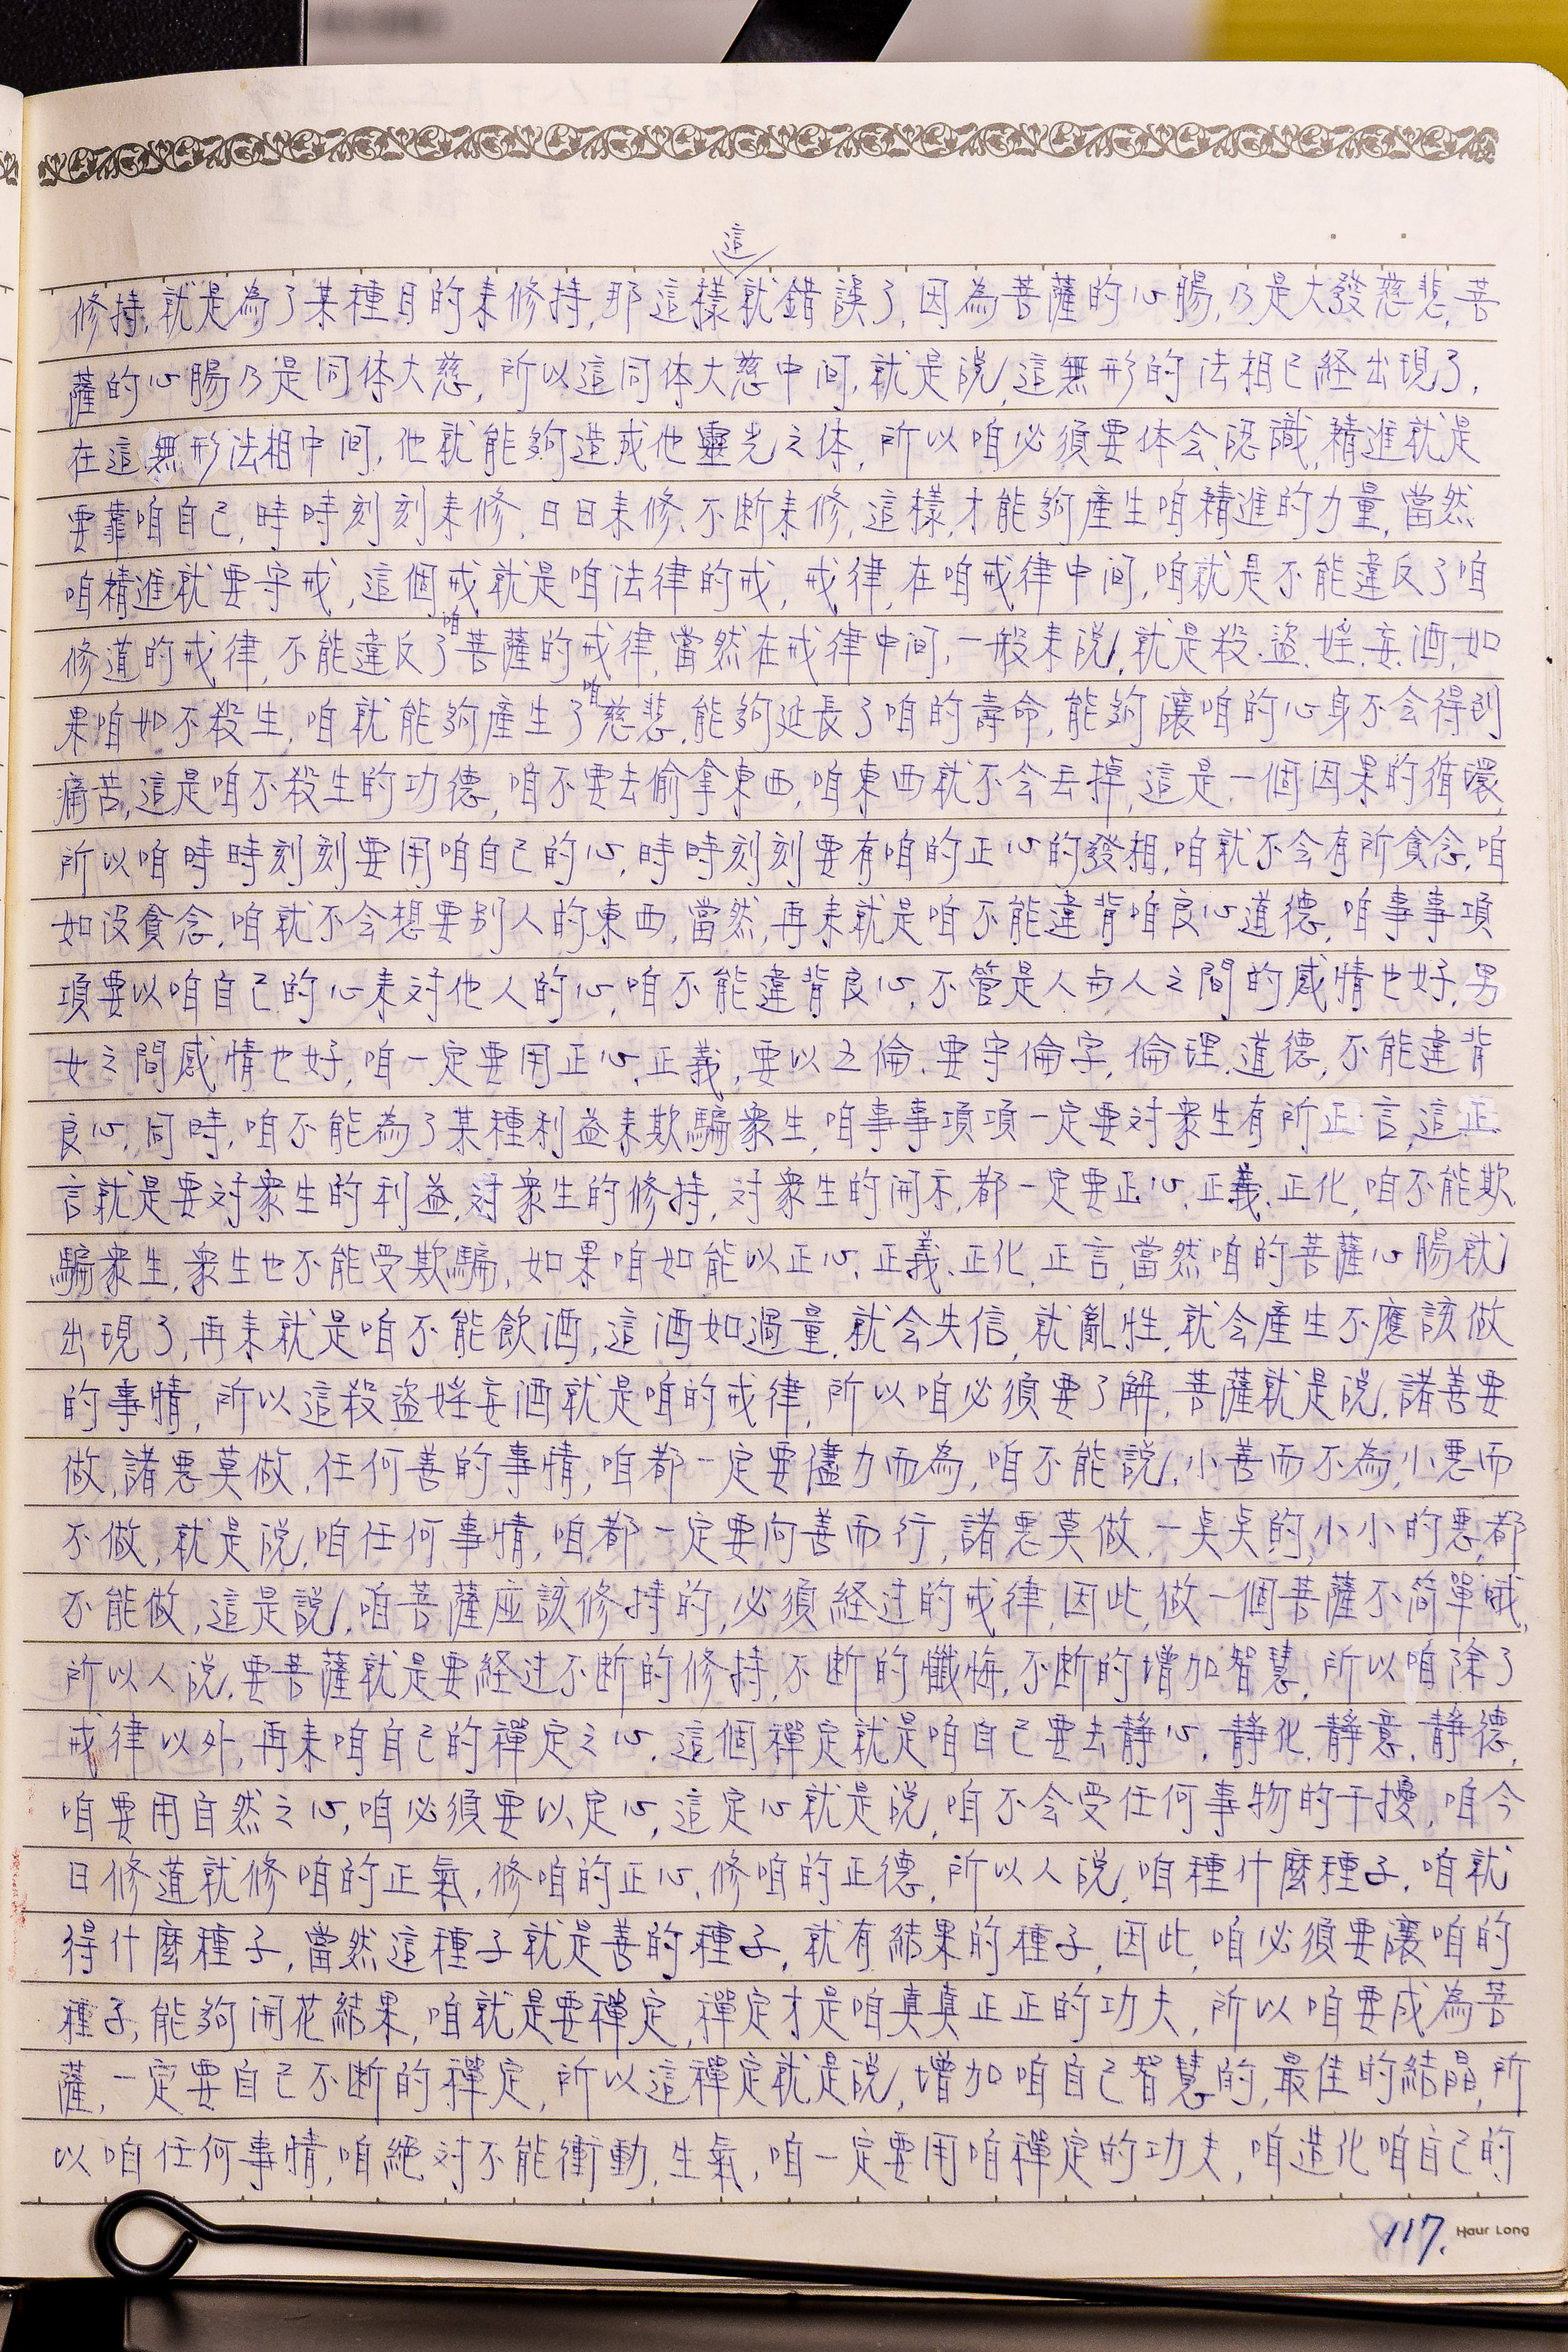 這
修持,就是為了某種目的耒修持,那這樣就錯誤了,因為菩薩的心腸,乃是大發慈悲,菩
薩的心腸乃是同体大慈,所以這同体大慈中间,就是說,這無形的法相已経出現了,
在這無形法相中间,他就能夠造成他靈光之体,所以咱必須要体会、認識,精進就是
要靠咱自己,時時刻刻耒修、日日耒修、不断耒修,這樣,才能夠產生咱精進的力量,當然
咱精進就要守戒,這個戒就是咱法律的戒,戒律,在咱戒律中间,咱就是不能違反了咱
咱
修道的戒律,不能違反了菩薩的戒律,當然在戒律中间,一般耒說,就是殺.盜.婬.妄.酒,如
咱
果咱如不殺生,咱就能夠產生了慈悲,能夠延長了咱的壽命,能夠讓咱的心身不会得到
痛苦,這是咱不殺生的功德,咱不要去偷拿東西,咱東西就不会丟掉,這是一個因果的循環,
所以咱時時刻刻要用咱自己的心,時時刻刻要有咱的正心的發相,咱就不会有所貪念,咱
如沒貪念,咱就不会想要別人的東西,當然,再耒就是咱不能違背咱良心道德,咱事事項
項要以咱自己的心耒対他人的心,咱不能違背良心,不管是人与人之間的感情也好,男
女之間感情也好,咱一定要用正心,正義,要以五倫.要守倫字,倫理.道德,不能違背
良心,同時,咱不能為了某種利益耒欺騙衆生,咱事事項項一定要対衆生有所正言,這正
言就是要対衆生的利益,対衆生的修持,対衆生的開示,都一定要正心,正義、正化,咱不能欺
騙衆生,衆生也不能受欺騙,如果咱如能以正心、正義、正化,正言,當然咱的菩薩心腸就
出現了,再耒就是咱不能飲酒,這酒如過量,就会失信,就亂性,就会產生不應該做
的事情,所以這殺盜婬妄酒就是咱的戒律,所以咱必須要了解,菩薩就是說,諸善要
做,諸惡莫做,任何善的事情,咱都一定要儘力而為,咱不能說,小善而不為,小惡而
不做,就是說,咱任何事情,咱都一定要向善而行,諸惡莫做,一奌奌的,小小的惡,都
不能做,這是說,咱菩薩应該修持的,必須経过的戒律,因此,做一個菩薩不简單哦,
所以人說,要菩薩就是要経过不断的修持,不断的懺悔,不断的增加智慧,所以咱除了
戒律以外,再耒咱自己的禪定之心,這個禪定就是咱自己要去静心,静化,静意,静德,
咱要用自然之心,咱必須要以定心,這定心就是說,咱不会受任何事物的干擾,咱今
日修道就修咱的正氣,修咱的正心,修咱的正德,所以人說,咱種什麼種子,咱就
得什麼種子,當然這種子就是善的種子,就有結果的種子,因此,咱必須要讓咱的
種子,能夠開花結果,咱就是要禪定,禪定才是咱真真正正的功夫,所以咱要成為菩
薩,一定要自己不断的禪定,所以這禪定就是說,增加咱自己智慧的,最佳的結晶,所
以咱任何事情,咱絕対不能衝動,生氣,咱一定要用咱禪定的功夫,咱造化咱自己的
117. Haur Long